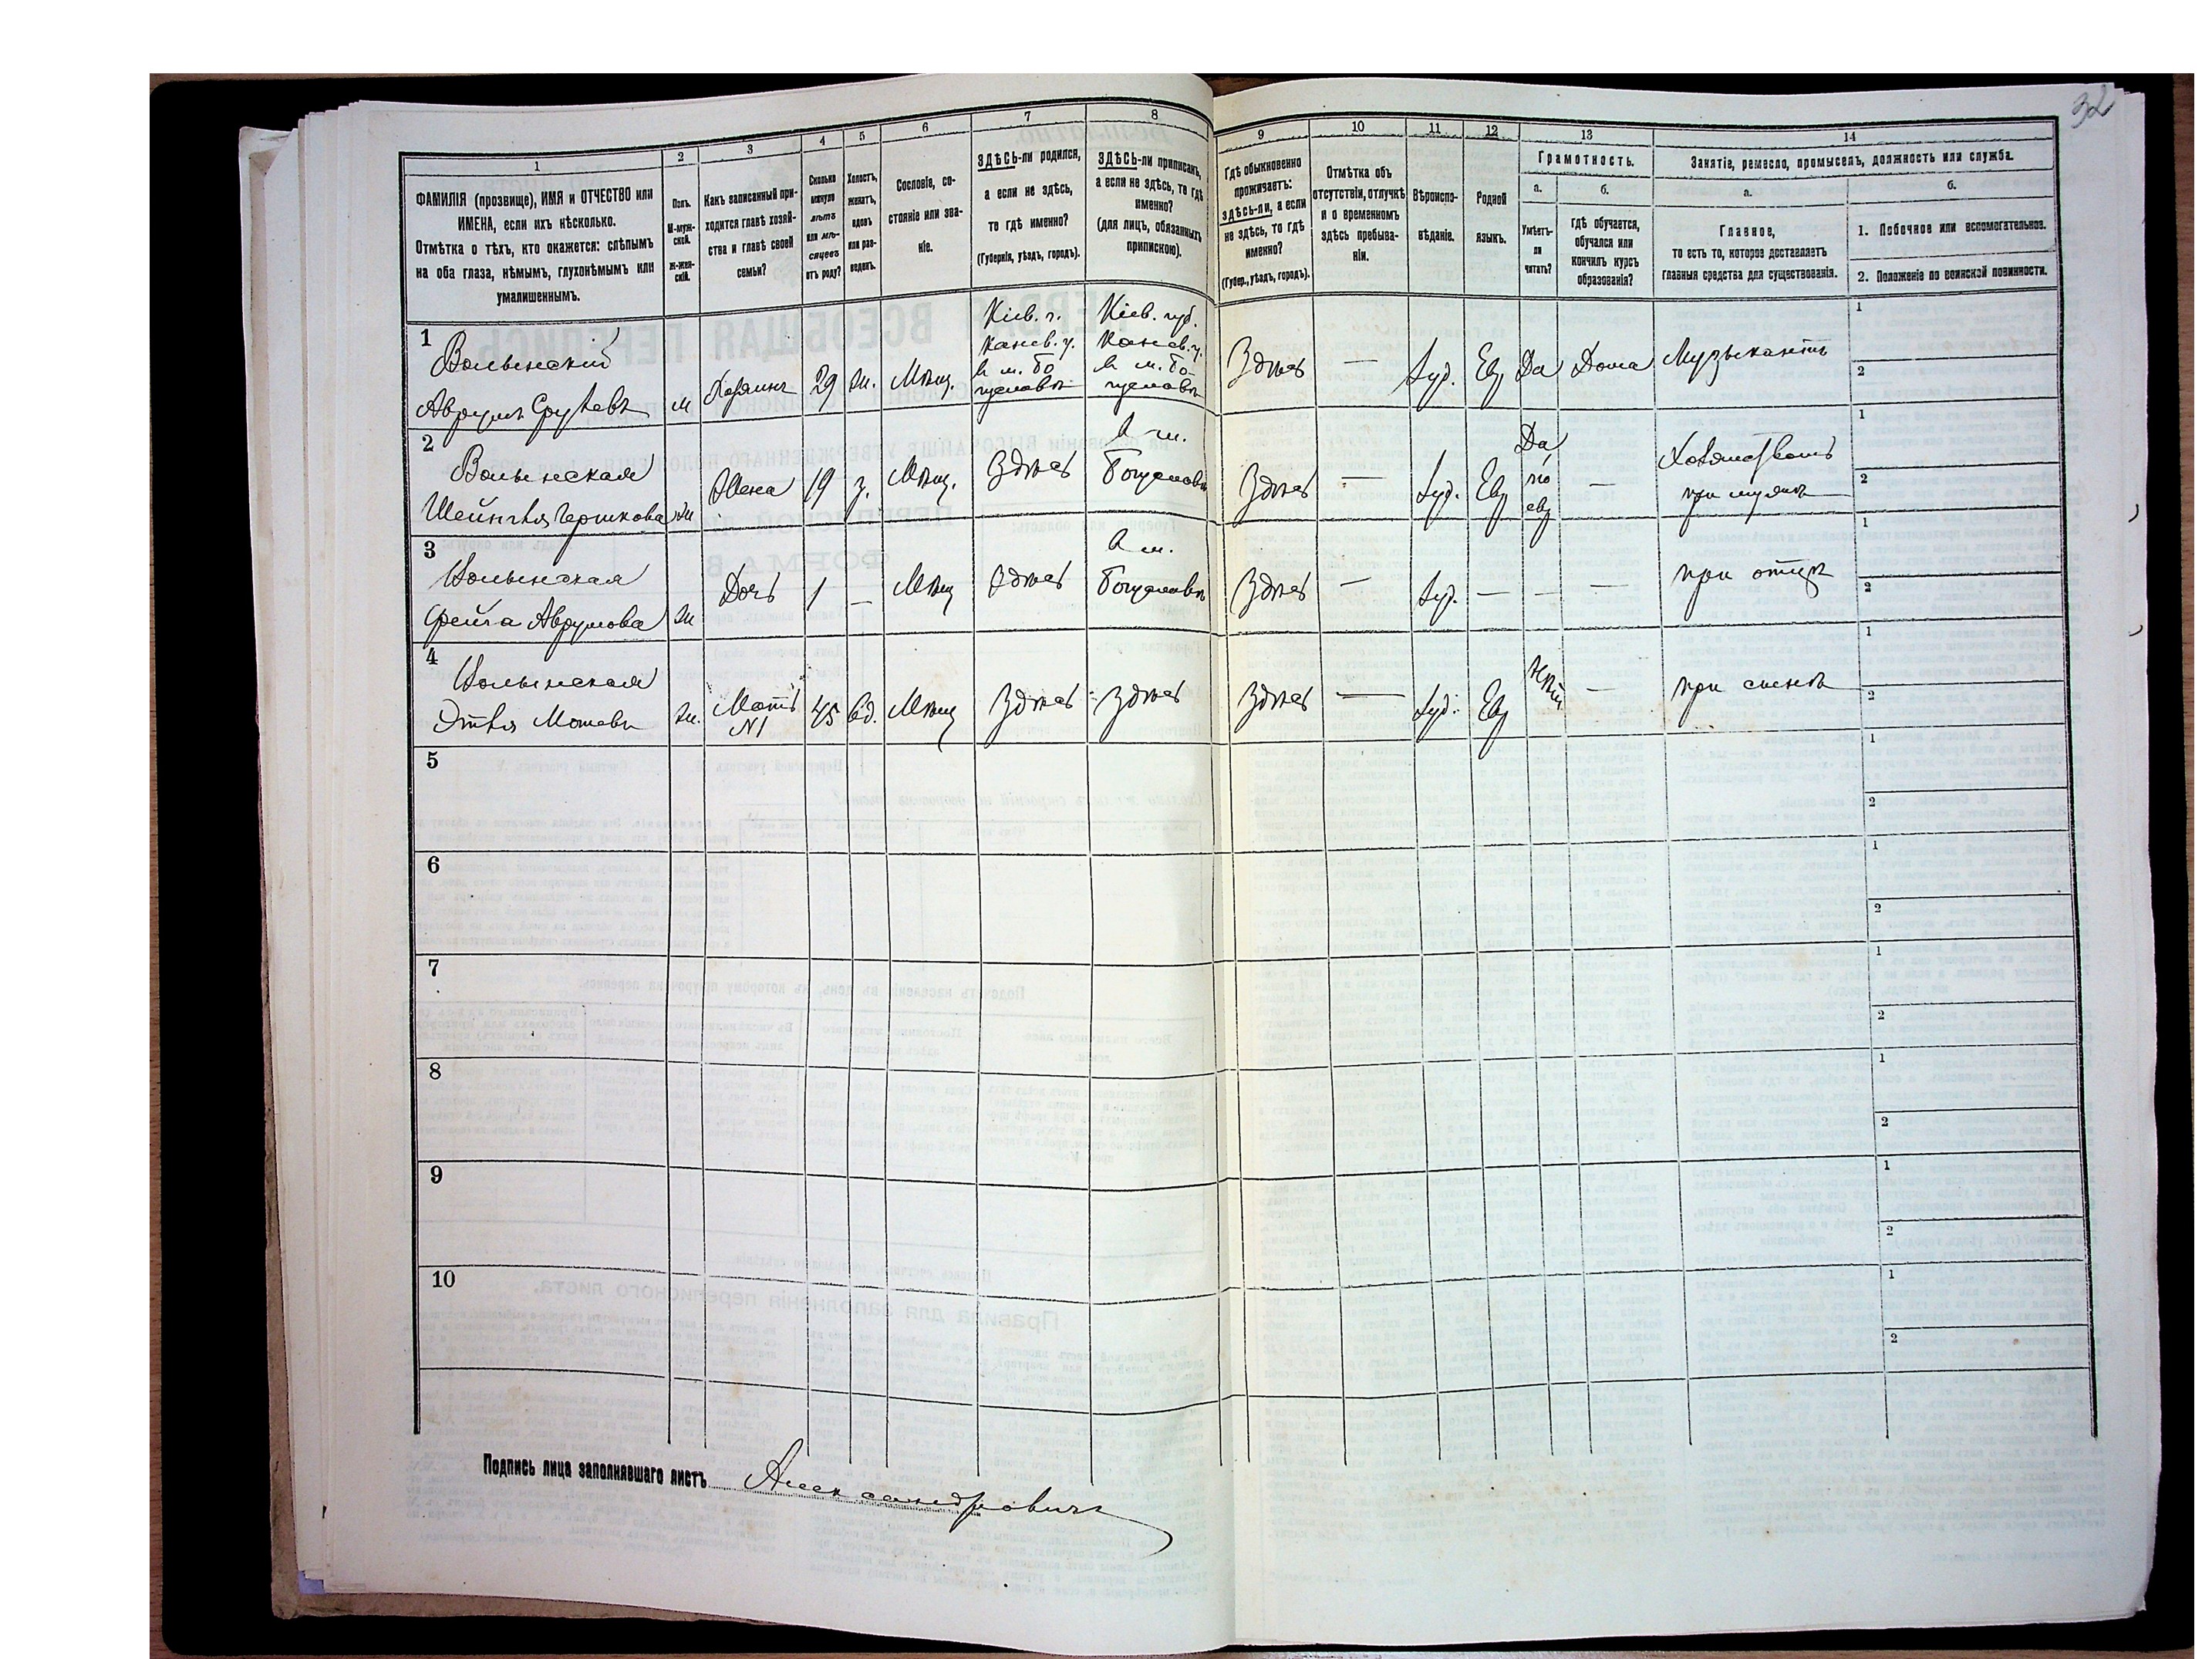 32
1 2 3 4 5 6 7 8 9 10 11 12 13 14
ФАМИЛІЯ (прозвище), ИМЯ и ОТЧЕСТВО или
ИМЕНА, если ихъ нѣсколько.
Отмѣтка о тѣхъ, кто окажется: слѣпымъ
на оба глаза, нѣмымъ, глухонѣмымъ или
умалишеннымъ.
Полъ.
М-муж-
ской.
Ж-жен-
скій.
Какъ записанный при-
ходится главѣ хозяй-
ства и главѣ своей
семьи?
Сколько
минуло
лѣтъ
или мѣ-
сяцевъ
отъ роду?
Холостъ,
женатъ,
вдовъ
или раз-
веденъ.
Сословіе, со-
стояніе или зва-
ніе.
ЗДѢСЬ-ли родился,
а если не здѣсь,
то гдѣ именно?
(Губернія, уѣздъ, городъ).
ЗДѢСЬ-ли приписанъ,
а если не здѣсь, то гдѣ
именно?
(для лицъ, обязанныхъ
припискою).
Гдѣ обыкновенно
проживаетъ:
здѣсь-ли, а если
не здѣсь, то гдѣ
именно?
(Губер., уѣздъ, городъ).
Отмѣтка объ
отсутствіи, отлучкѣ
и о временномъ
здѣсь пребыва-
ніи.
Вѣроиспо-
вѣданіе.
Родной
языкъ.
Грамотность.
а. б.
Умѣетъ-
ли
читать?
гдѣ обучается,
обучался или
кончилъ курсъ
образованія?
Занятіе, ремесло, промыселъ, должность или служба.
а. б.
Главное,
то есть то, которое доставляетъ
главныя средства для существованія.
1. Побочное или вспомогательное.
2. Положеніе по воинской повинности.
1
Волынскій
Аврумъ Срулевъ
м
Хозяинъ
29
ж.
Мѣщ.
Кіев. г.
Канев. у.
в м. Бо
гуславѣ
Кіев. губ.
Канев. у.
в м. Бо-
гуславѣ
Здѣсь
—
Іуд.
Евр
Да
Дома
Музыкантъ
1
2
2
Волынская
ж
Жена
19
з.
Мѣщ.
Здѣсь
В м.
Богуславѣ
Здѣсь
—
Іуд.
Евр
Да
по
евр
—
при мужѣ
1
2
3
Волынская
Фейга Аврумова
ж
Дочь
1
—
Мѣщ
Здѣсь
В м.
Богуславѣ
Здѣсь
—
Іуд.
—
—
—
при отцѣ
1
2
4
Волынская
Этля Мошева
ж.
Мать
N1
45
вд.
Мѣщ
Здѣсь
Здѣсь
Здѣсь
—
Іуд.
Евр
Нѣтъ
—
при сынѣ
1
2
5
1
2
6
1
2
7
1
2
8
1
2
9
1
2
10
1
2
Подпись лица заполнявшаго листъ Александровичъ